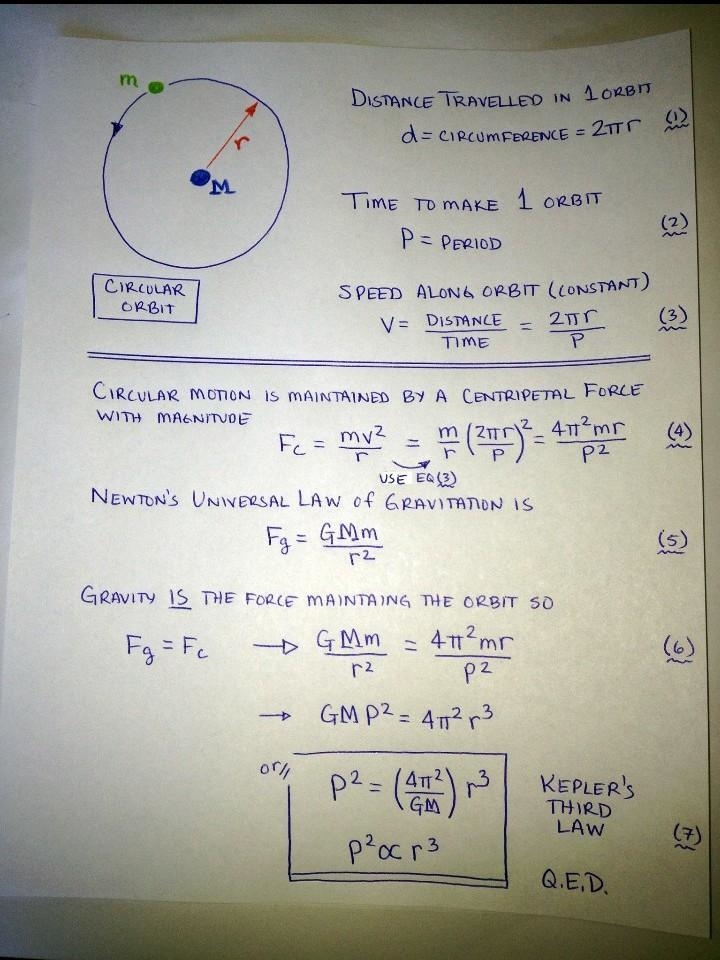 m
r
M
CIRCULAR
ORBIT
DISTANCE TRAVELLED IN 1 ORBIT
d = CIRCUMFERENCE = 2πr (1)
TIME TO MAKE 1 ORBIT
P = PERIOD (2)
SPEED ALONG ORBIT (CONSTANT)
V = DISTANCE/TIME = 2πr/P (3)
CIRCULAR MOTION IS MAINTAINED BY A CENTRIPETAL FORCE
WITH MAGNITUDE
Fc = mv²/r = m/r (2πr/P)² = 4π²mr/P² (4)
USE EQ(3)
NEWTON'S UNIVERSAL LAW OF GRAVITATION IS
Fg = GMm/r² (5)
GRAVITY IS THE FORCE MAINTAING THE ORBIT SO
Fg = Fc → GMm/r² = 4π²mr/P² (6)
→ GMP² = 4π²r³
or// P² = (4π²/GM) r³
P² ∝ r³
KEPLER'S
THIRD
LAW (7)
Q.E.D.